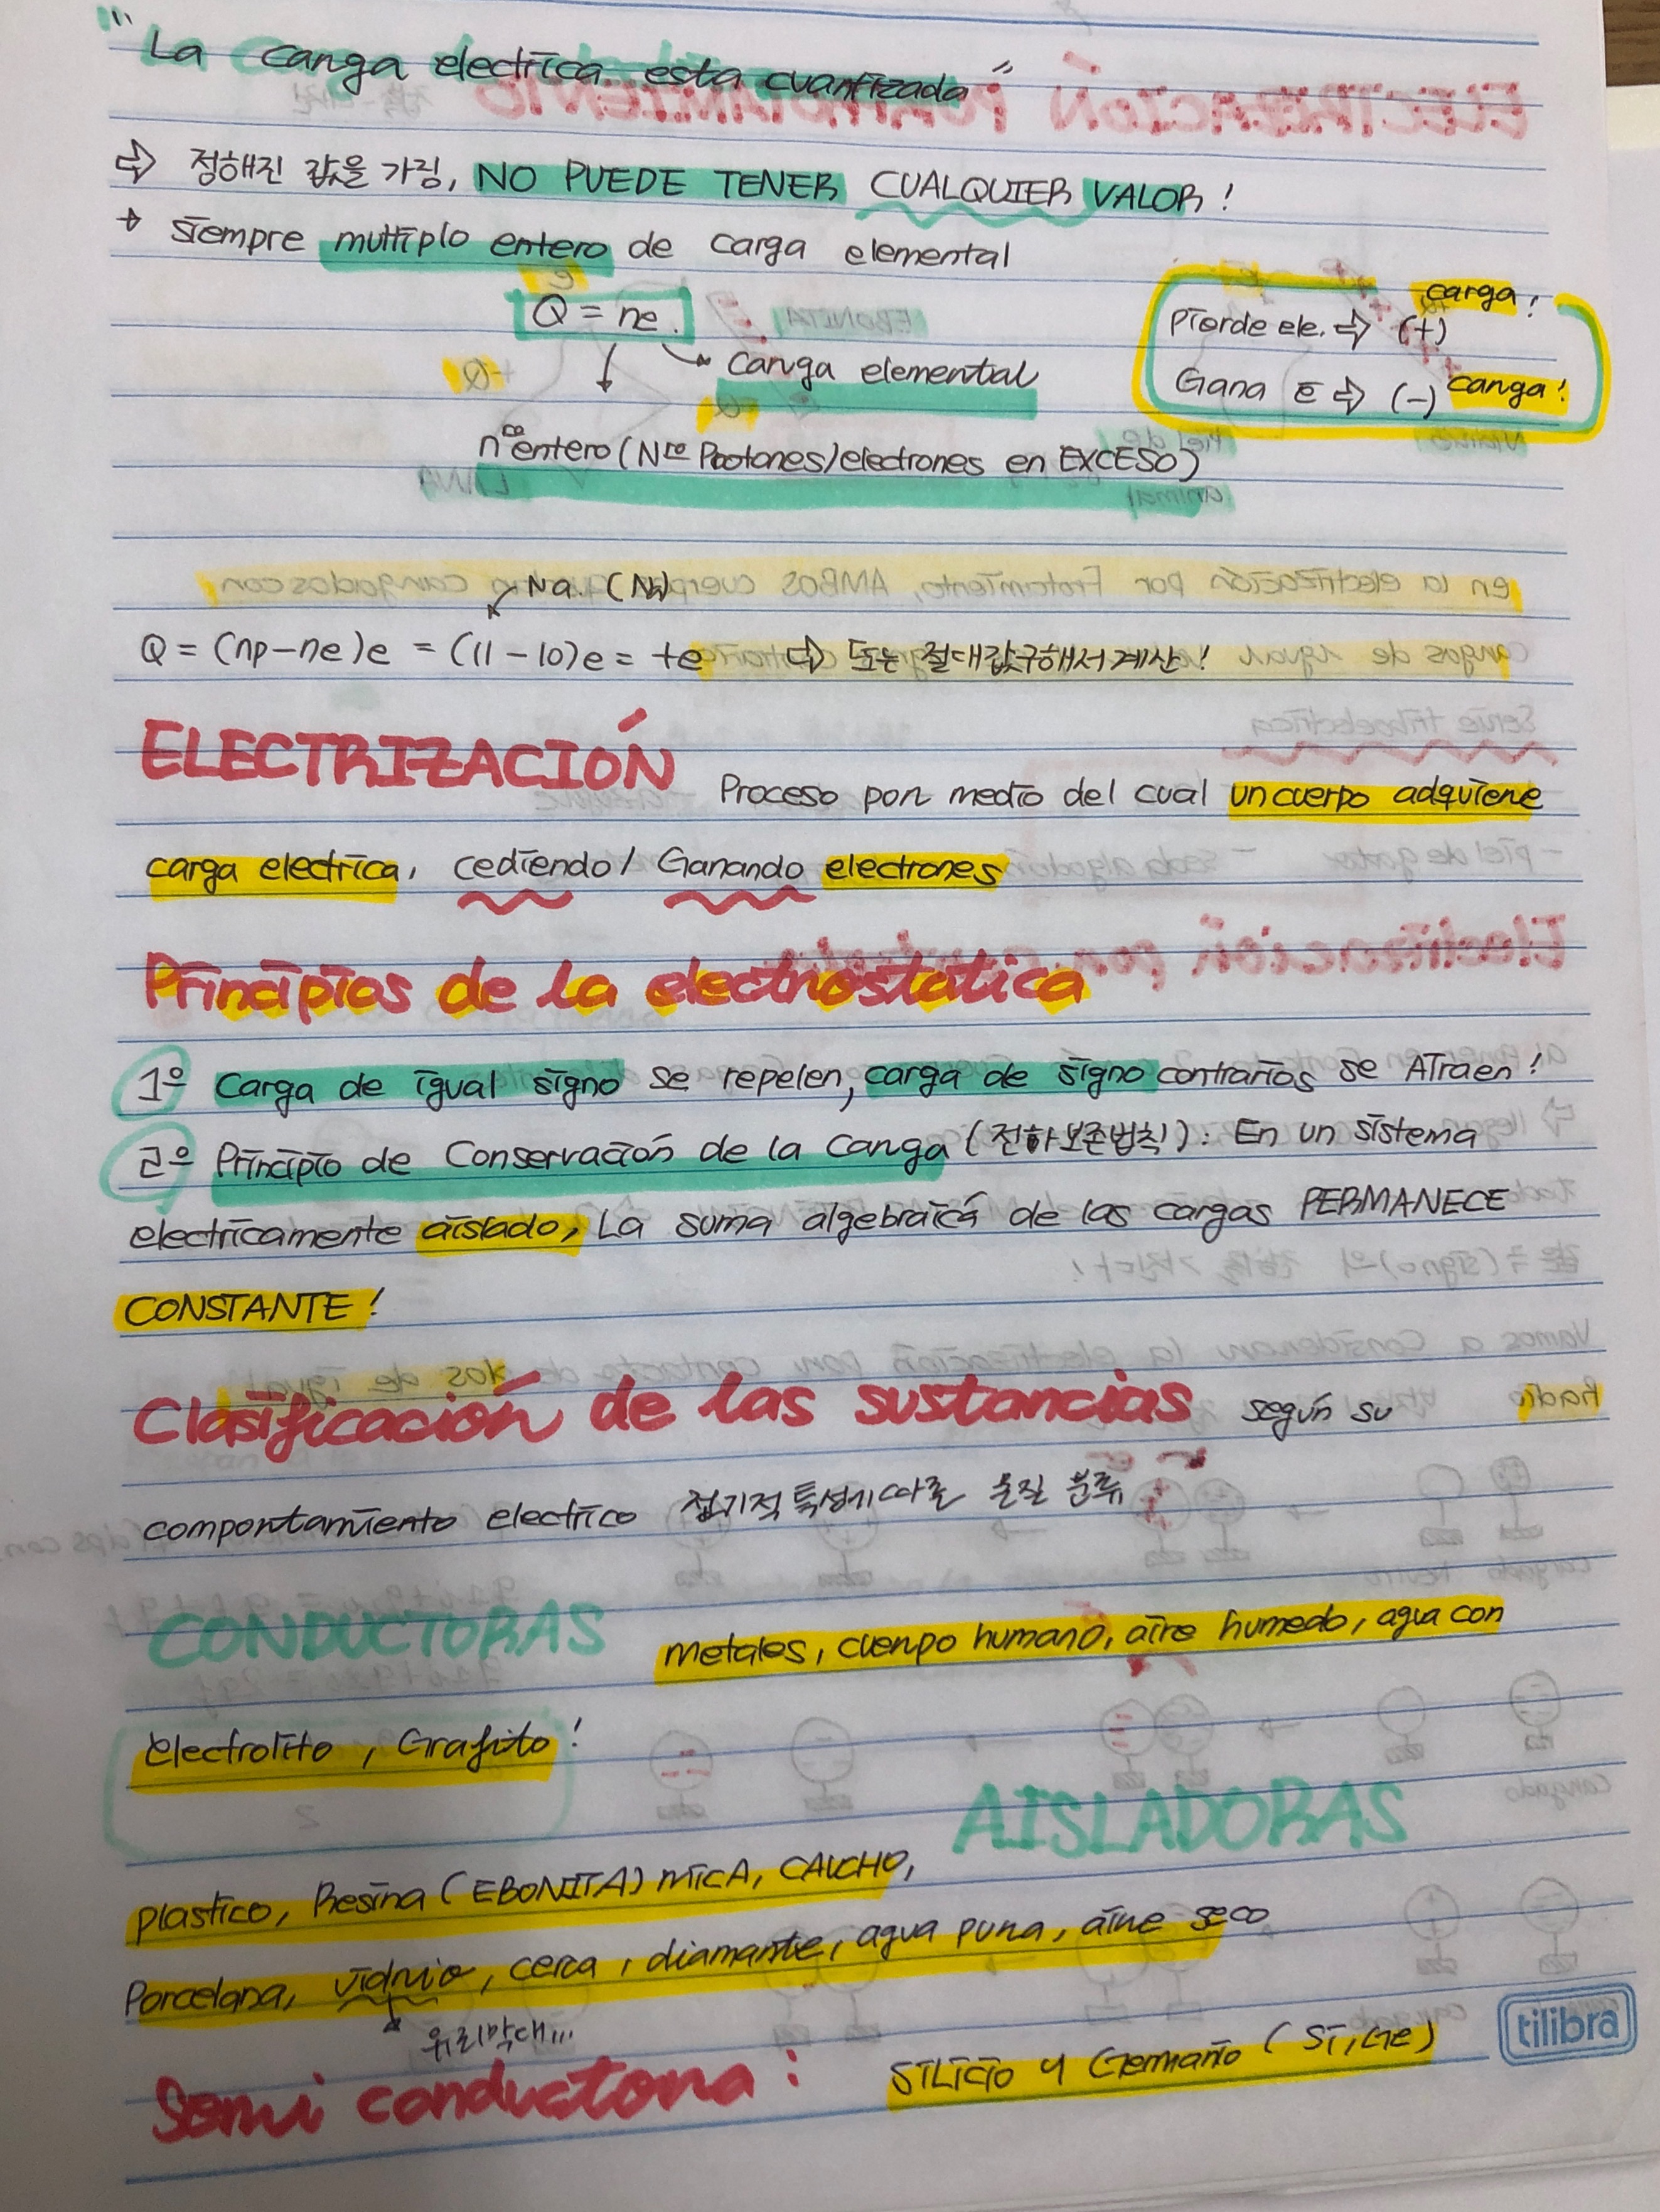 "La carga electrica esta cuantizada"
⇨ 정해진 값을 가짐, NO PUEDE TENER CUALQUIER VALOR!
→ siempre multiplo entero de carga elemental
Q = ne.
Carga elemental
nro entero (Nro Protones/electrones en EXCESO)
carga!
Pierde ele. ⇨ (+)
Gana e ⇨ (-) carga!
Na.
Q = (np-ne)e = (11-10)e = +e ⇨ 또는 절대값구해서계산!
ELECTRIZACIÓN Proceso por medio del cual un cuerpo adquiere
carga electrica, cediendo/ Ganando electrones
Principios de la electrostatica
1º Carga de igual signo se repelen, carga de signo contrarios se ATraen!
2º Principio de Conservación de la Carga (전하보존법칙): En un sistema
electricamente aislado, La suma algebraicá de las cargas PERMANECE
CONSTANTE!
Clasificación de las sustancias según su
comportamiento electrico 물질 분류
CONDUCTORAS metales, cuerpo humano, aire humedo, agua con
electrolito, Grafito!
AISLADORAS
plastico, Resina (EBONITA) MicA, CAUCHO,
Porcelana, vidrio, cera, diamante, agua pura, aire seco
유리막대...
Semi conductora: Silicio y Germanio (Si, Ge)
tilibra